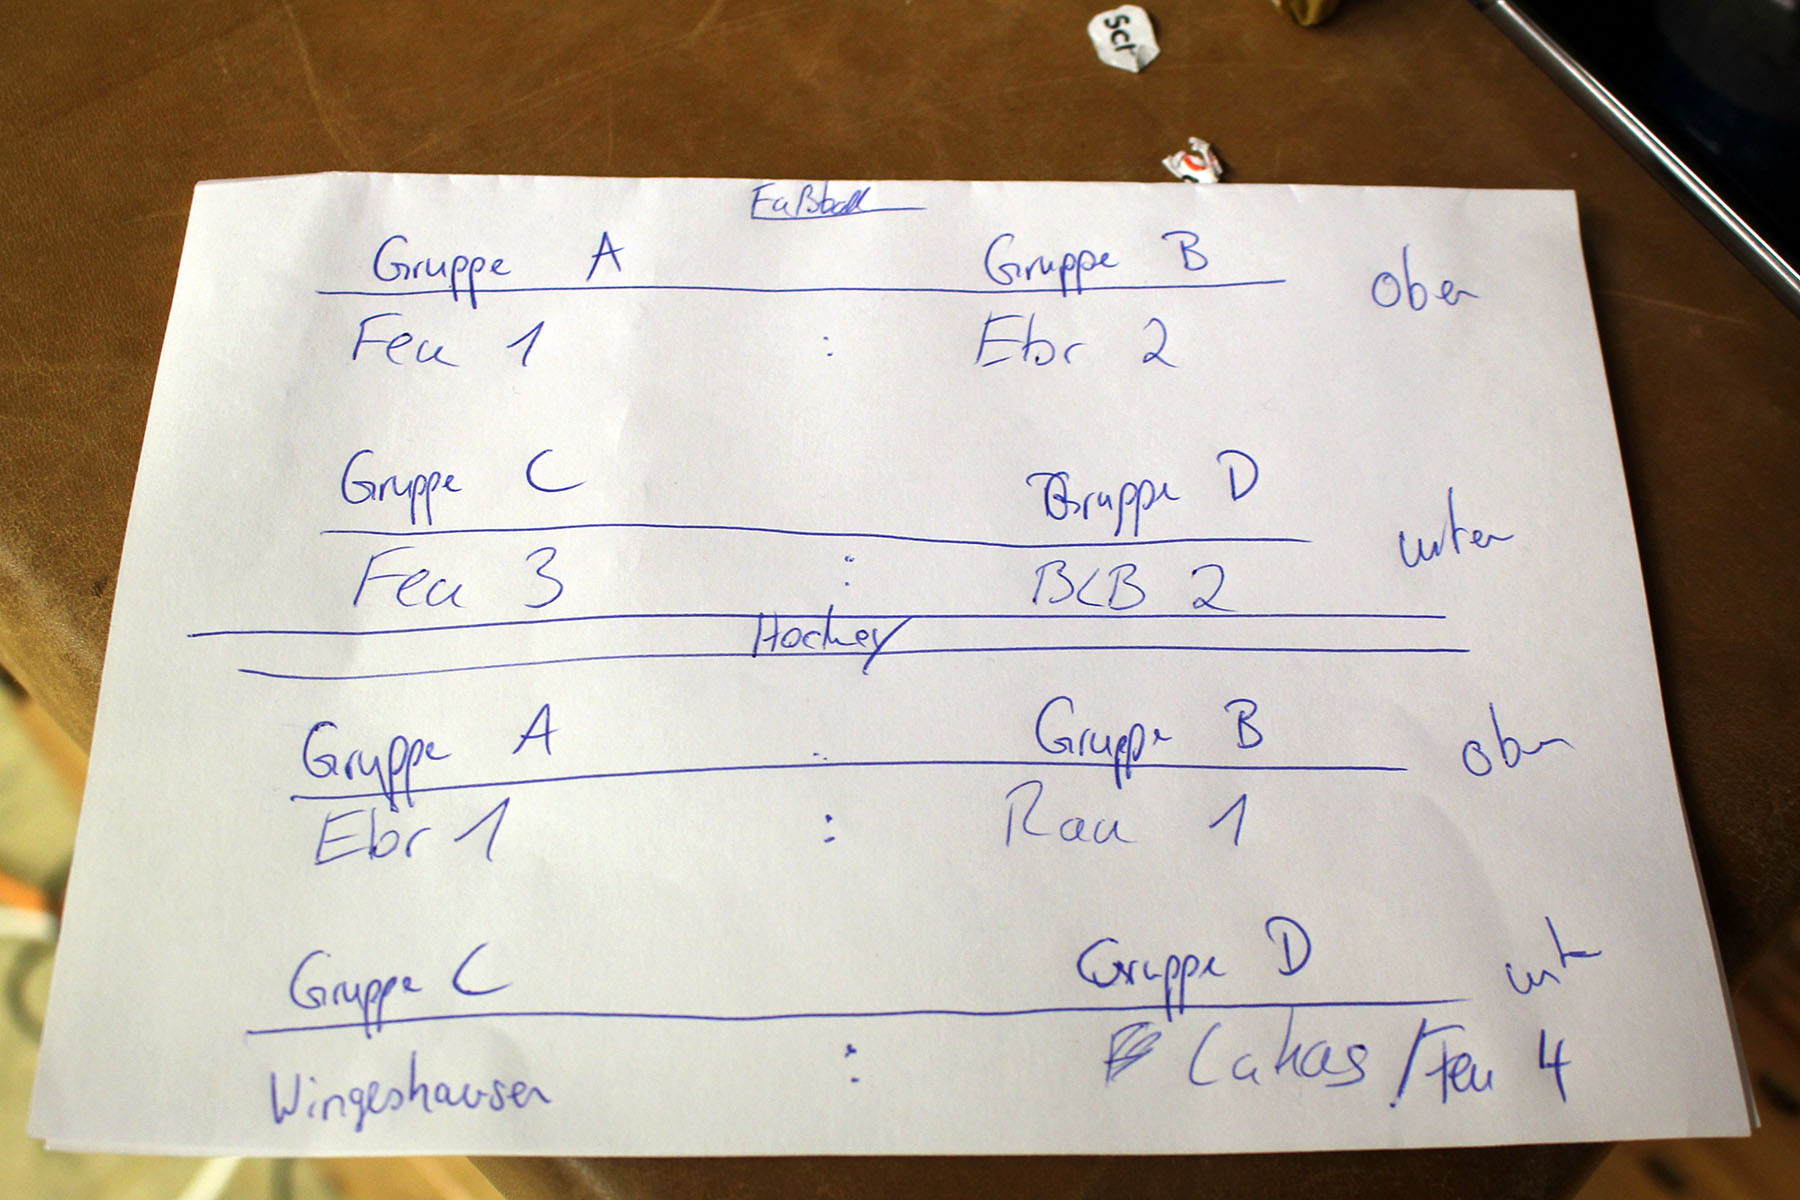 Scr
Fußball
Gruppe A Gruppe B oben
Feu 1 : Ebr 2
Gruppe C Gruppe D unten
Feu 3 : BLB 2
Hockey
Gruppe A Gruppe B oben
Ebr 1 : Rau 1
Gruppe C Gruppe D unten
Wingeshausen : Lukas / Feu 4